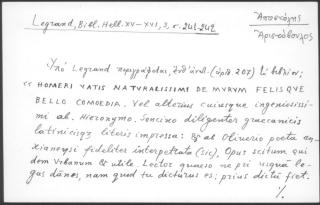 Legrand, Bibl. Hell. XV-XVI, 3, σ. 241-242
Ἀποστόλης
Ἀριστόβουλος
Ὑπὸ Legrand περιγράφεται, ἔνθ' ἀνωτ. (ἀριθ. 207) τὸ βιβλίον:
"HOMERI VATIS NATURALISSIMI DE MVRVM FELISQUE
BELLO COMOEDIA. Vel alterius cuiusque ingeniosissi-
mi ab. Hieronymo. Soncino diligenter graecanicis
latinisque literis impressa: & ab Oliverio poeta an-
xianensi fideliter interpretata (sic). Opus scitum qui
dem Vrbanum & utile. Lector quaeso ne pri usquā le-
gas dānes, nam quod tu dicturus es; prius dictū fiet.
./.